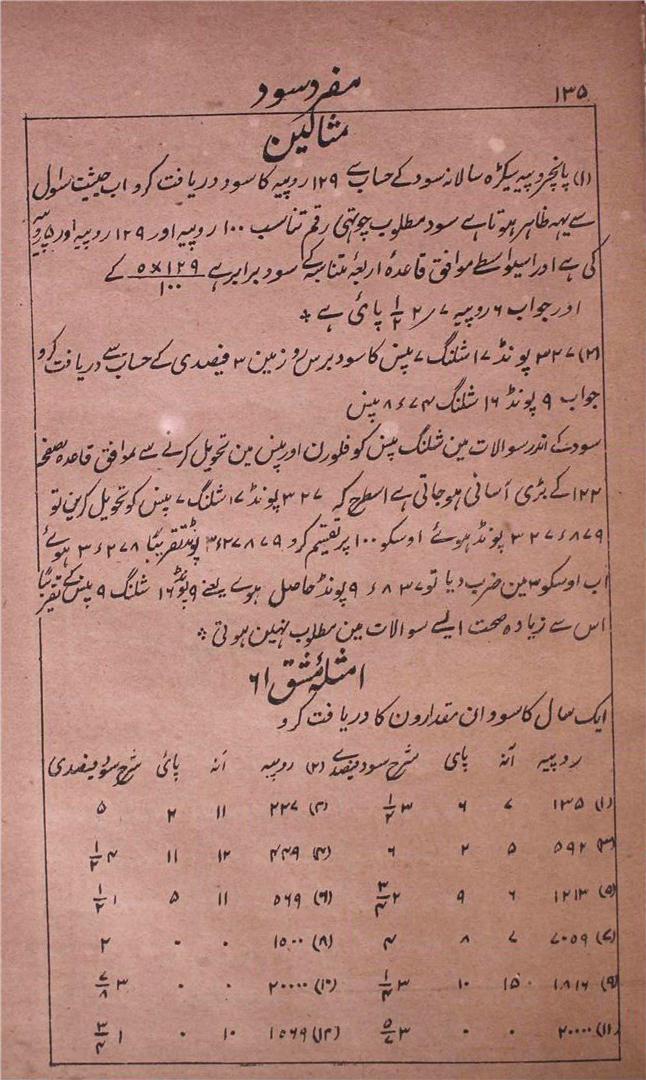 ۱۳۵
مفرد سود
مثالین
(۱) پانچروپیہ سیکڑہ سالانہ سود کے حساب سے ۱۲۹ روپیہ کا سود دریافت کرو اب حیثیت سوال
سے یہہ ظاہر ہوتا ہے سود مطلوب چوتھی رقم تناسب ۱۰۰ روپیہ اور ۱۲۹ روپیہ اور ۵ روپیہ
کی ہے اور اسیواسطے موافق قاعدۂ اربعۂ متناسبہ کے سود برابر ہے ۵×۱۲۹/۱۰۰ کے
اور جواب ۶ روپیہ ۷ ؍ ۲ ۱/۲ پائی ہے *
(۲) ۳۲۷ پونڈ ۱۷ شلنگ ۷ پنس کا سود برس روز مین ۳ فیصدی کے حساب سے دریافت کرو
جواب ۹ پونڈ ۱۶ شلنگ ۸ء۶۷۴ پنس
سود کے اندر سوالات مین شلنگ پنس کو فلورن اور پنس مین تحویل کرنے سے موافق قاعدہ صفحہ
۱۲۲ کے بڑی آسانی ہو جاتی ہے اسطرح کہ ۳۲۷ پونڈ ۱۷ شلنگ ۷ پنس کو تحویل کرین تو
۳۲۷ء۸۷۹ پونڈ ہوئے اوسکو ۱۰۰ پر تقسیم کرو ۳ء۲۷۸۷۹ پونڈ تقریباً ۳ء۲۷۸ ہوئے
اب اوسکو ۳ مین ضرب دیا تو ۹ء۸۳۷ پونڈ حاصل ہوے یعنے ۹ پونڈ ۱۶ شلنگ ۹ پنس کے تقریباً
اس سے زیادہ صحت ایسے سوالات مین مطلوب نہین ہوتی *
امثلۂ مشق ۶۱
ایک سال کا سود ان مقدارون کا دریافت کرو
روپیہ آنہ پای شرح سود فیصدے (۲) روپیہ آنہ پائی شرح سود فیصدی)
(۱) ۱۳۵ ۷ ۶ ۳ ۱/۲ (۲) ۲۲۷ ۱۱ ۲ ۵
(۳) ۵۹۲ ۵ ۲ ۶ (۴) ۴۴۹ ۱۲ ۱۱ ۴ ۱/۲
(۵) ۱۲۱۳ ۶ ۹ ۲ ۳/۴ (۶) ۵۶۹ ۱۱ ۵ ۱ ۱/۲
(۷) ۷۰۵۹ ۷ ۸ ۴ (۸) ۱۵۰۰ ۰ ۰ ۲
(۹) ۱۸۱۶ ۱۵ ۱۰ ۳ ۱/۴ (۱۰) ۲۰۰۰۰ ۰ ۰ ۳ ۷/۸
(۱۱) ۲۰۰۰۰ ۰ ۰ ۳ ۵/۷ (۱۲) ۱۵۶۹ ۱۰ ۰ ۱ ۳/۴